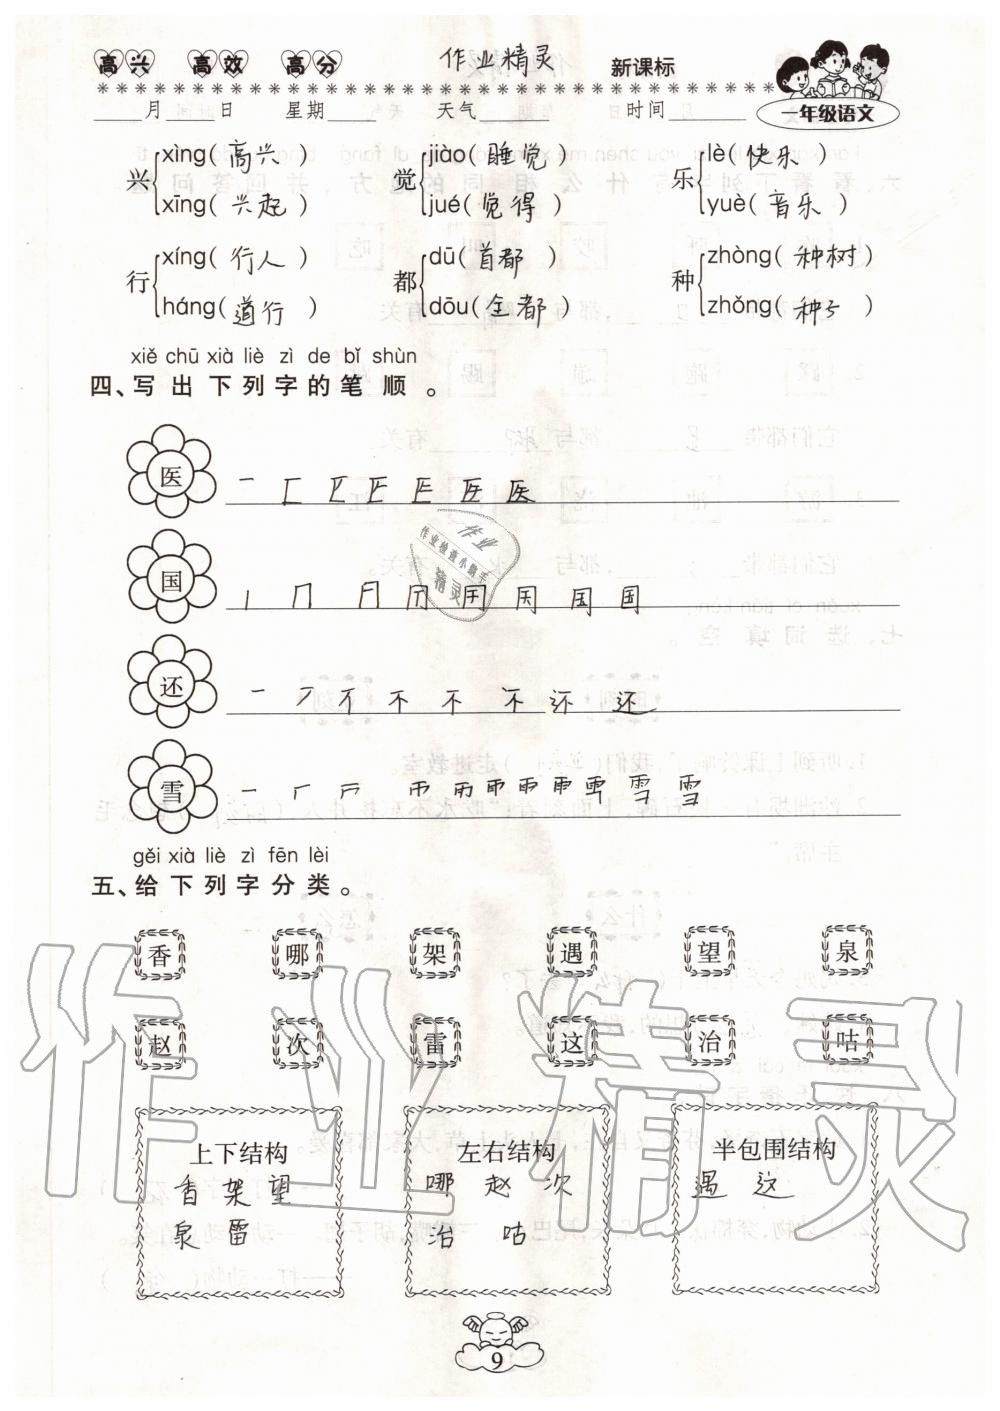 高兴 高效 高分 作业精灵 新课标
一年级语文
____月____日 星期____ 天气______ 时间_______
兴 xìng( 高兴 ) xīng( 兴起 )
觉 jiào( 睡觉 ) jué( 觉得 )
乐 lè( 快乐 ) yuè( 音乐 )
行 xíng( 行人 ) háng( 道行 )
都 dū( 首都 ) dōu( 全都 )
种 zhòng( 种树 ) zhǒng( 种子 )
xiě chū xià liè zì de bǐ shùn
四、写出下列字的笔顺。
医
国
还
雪
gěi xià liè zì fēn lèi
五、给下列字分类。
香 哪 架 遇 望 泉
赵 次 雷 这 治 咕
上下结构 左右结构 半包围结构
香架望 哪 赵 次 遇 这
泉雷 治 咕
9
作业
作业检查小助手
精灵
作业精灵